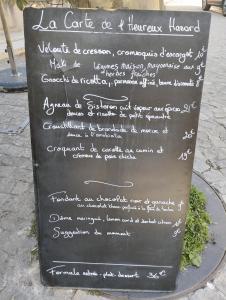 La Carte de l'Heureux Hasard
Velouté de cresson, cromesquis d'escargot 10€
Maki de légumes maison, mayonnaise aux 9€
herbes fraîches
Gnocchi de ricotta, parmesan affiné, beurre noisette 8€
Agneau de Sisteron cuit vapeur aux épices 21€
douces et risotto de petit épeautre
Croustillant de brandade de morue et
douce à l'
Croquant de carotte au cumin et 19€
crémeux de pois chiche
Fondant au chocolat noir et ganache
au chocolat blanc parfumée à la fève de tonka
Dôme meringué, lemon curd et sorbet citron 8€
Suggestion du moment 9€
Formule entrée - plat - dessert 36€